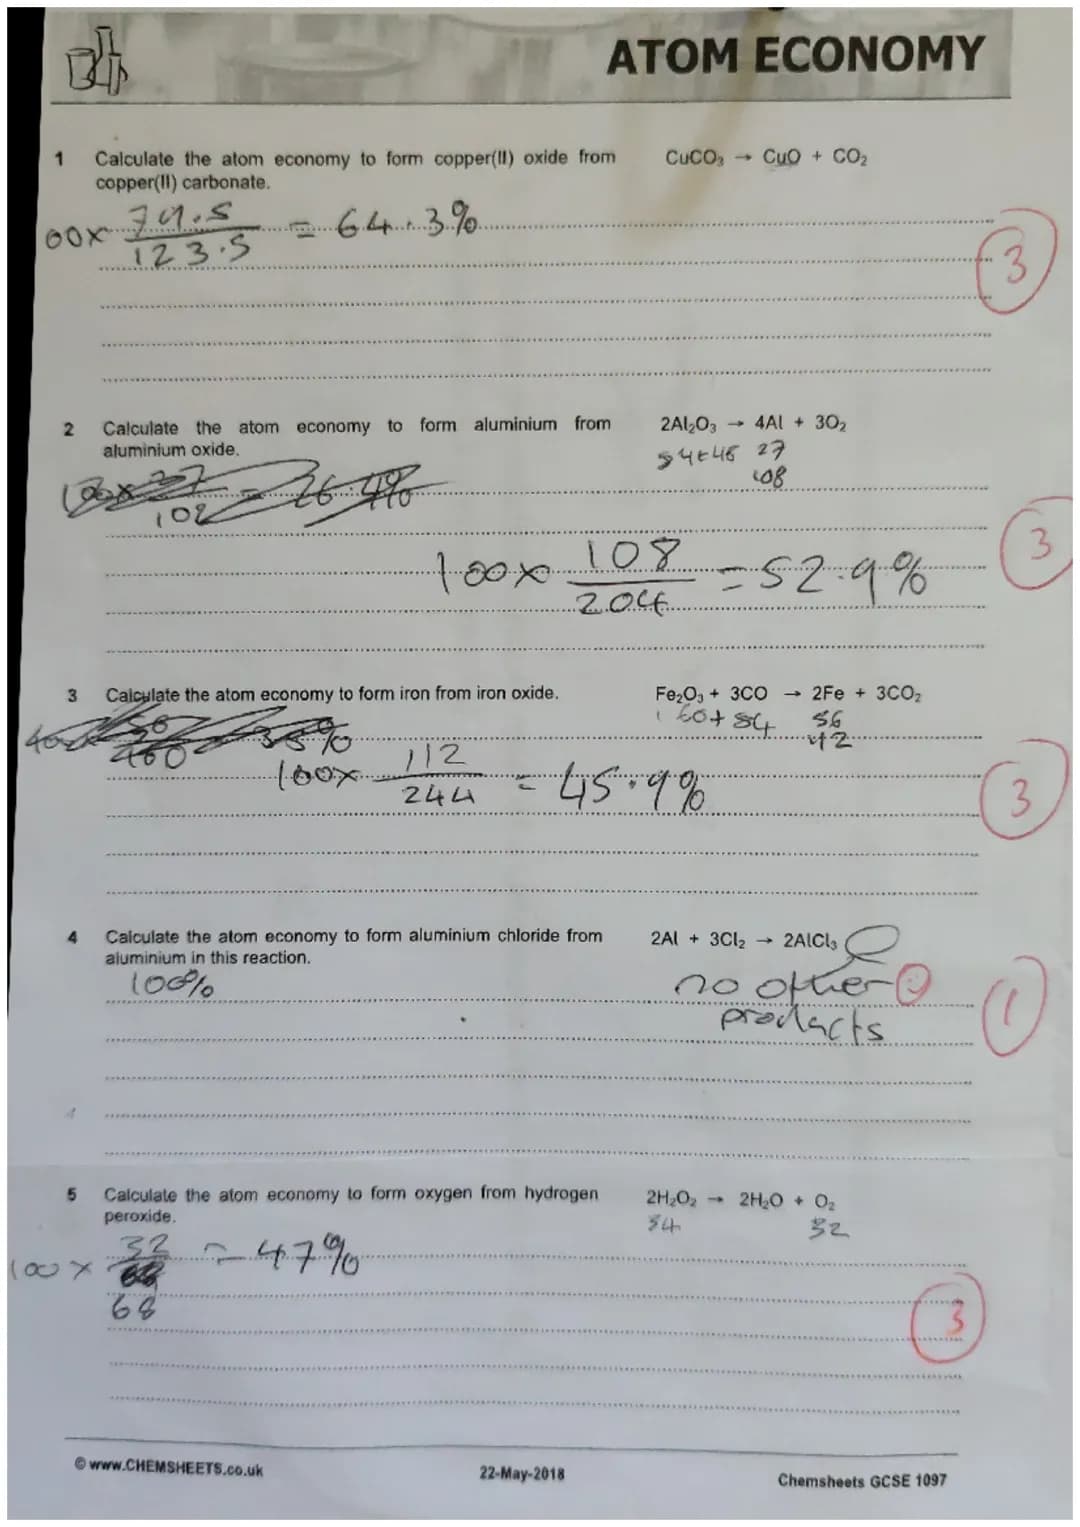 ATOM ECONOMY
1 Calculate the atom economy to form copper(II) oxide from CuCO₃ → CuO + CO₂
copper(II) carbonate.
00x 79.5 / 123.5 = 64.3%
3
2 Calculate the atom economy to form aluminium from 2Al₂O₃ → 4Al + 3O₂
aluminium oxide. 54+48 27
108
102
100x 108 / 204 = 52.9%
3
3 Calculate the atom economy to form iron from iron oxide. Fe₂O₃ + 3CO → 2Fe + 3CO₂
160+84 56
100x 112 / 244 = 45.9%
3
4 Calculate the atom economy to form aluminium chloride from 2Al + 3Cl₂ → 2AlCl₃
aluminium in this reaction.
100% no other
products
1
5 Calculate the atom economy to form oxygen from hydrogen 2H₂O₂ → 2H₂O + O₂
peroxide. 34 32
100 x 32 = 47%
68
3
© www.CHEMSHEETS.co.uk 22-May-2018 Chemsheets GCSE 1097